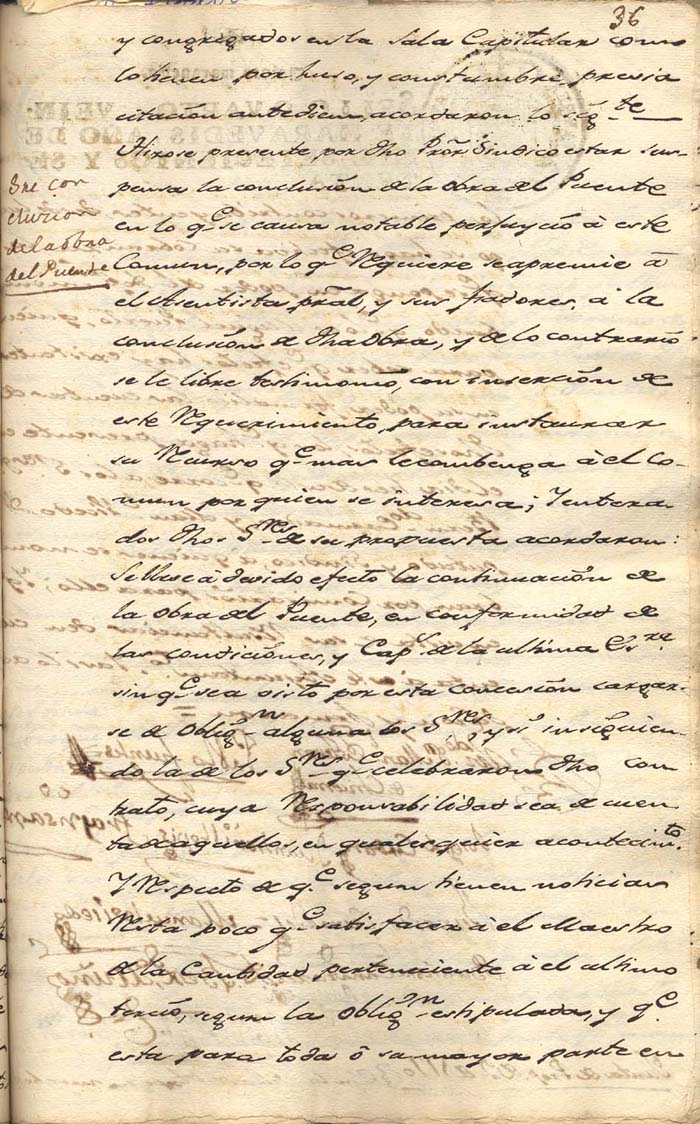 36
y congregados en la Sala Capitular como
lo tienen por huso, y constumbre, previa
citacion antediem, acordaron lo sig.te
Hizose presente por dho Pror Sindico estar sus-
pensa la conclusión de la obra del Puente
en lo q.e se causa notable perjuycio à este
Comun, por lo q.e Requiere se apremie à
el Asentista pral, y sus fiadores, à la
conclusión de dha obra, y de lo contrario
se le libre testimonio, con inserción de
este Requerimiento, para instaurar
su Recurso q.e mas le combenga à el Co-
mun por quien se interesa; Y entera-
dos dhos S.res de su propuesta acordaron:
Se llebe à devido efecto la continuación de
la obra del Puente, en conformidad de
las condiciones, y Cap.s de la ultima Es.re
sin q.e sea visto por esta concesión cargar-
se de oblig.on alguna los S.res, y si insiguien-
do la de los S.res q.e celebraron dho con
trato, cuya Responsavilidad sea de cuen
ta de aquellos, en qualesquier acontecim.to
Y Respecto de q.e segun tienen noticias
Resta poco q.e satisfacer à el Maestro
de la Cantidad perteneciente à el ultimo
tercio, segun la oblig.on estipulada, y q.e
esta para toda ô su mayor parte en
Sre con
clusion
de la obra
del Puente